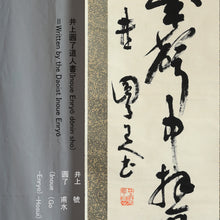 聲中拜
井上圓了道人書(Inoue Enryō dōnin sho)
=Written by the Daoist Inoue Enryō
井上 號
圓了 甫水
(Inoue (Gō
-Enryo) -Hosui)